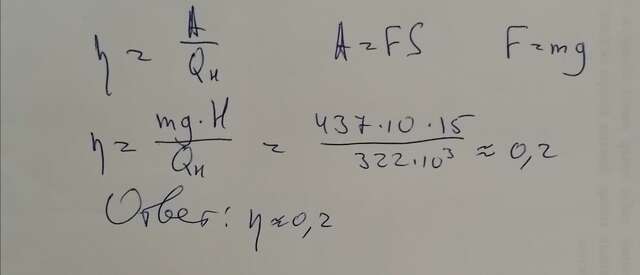 η = A/Qн A = FS F = mg
η = mg·H/Qн = 437·10·15/322·10³ ≈ 0,2
Ответ: η ≈ 0,2